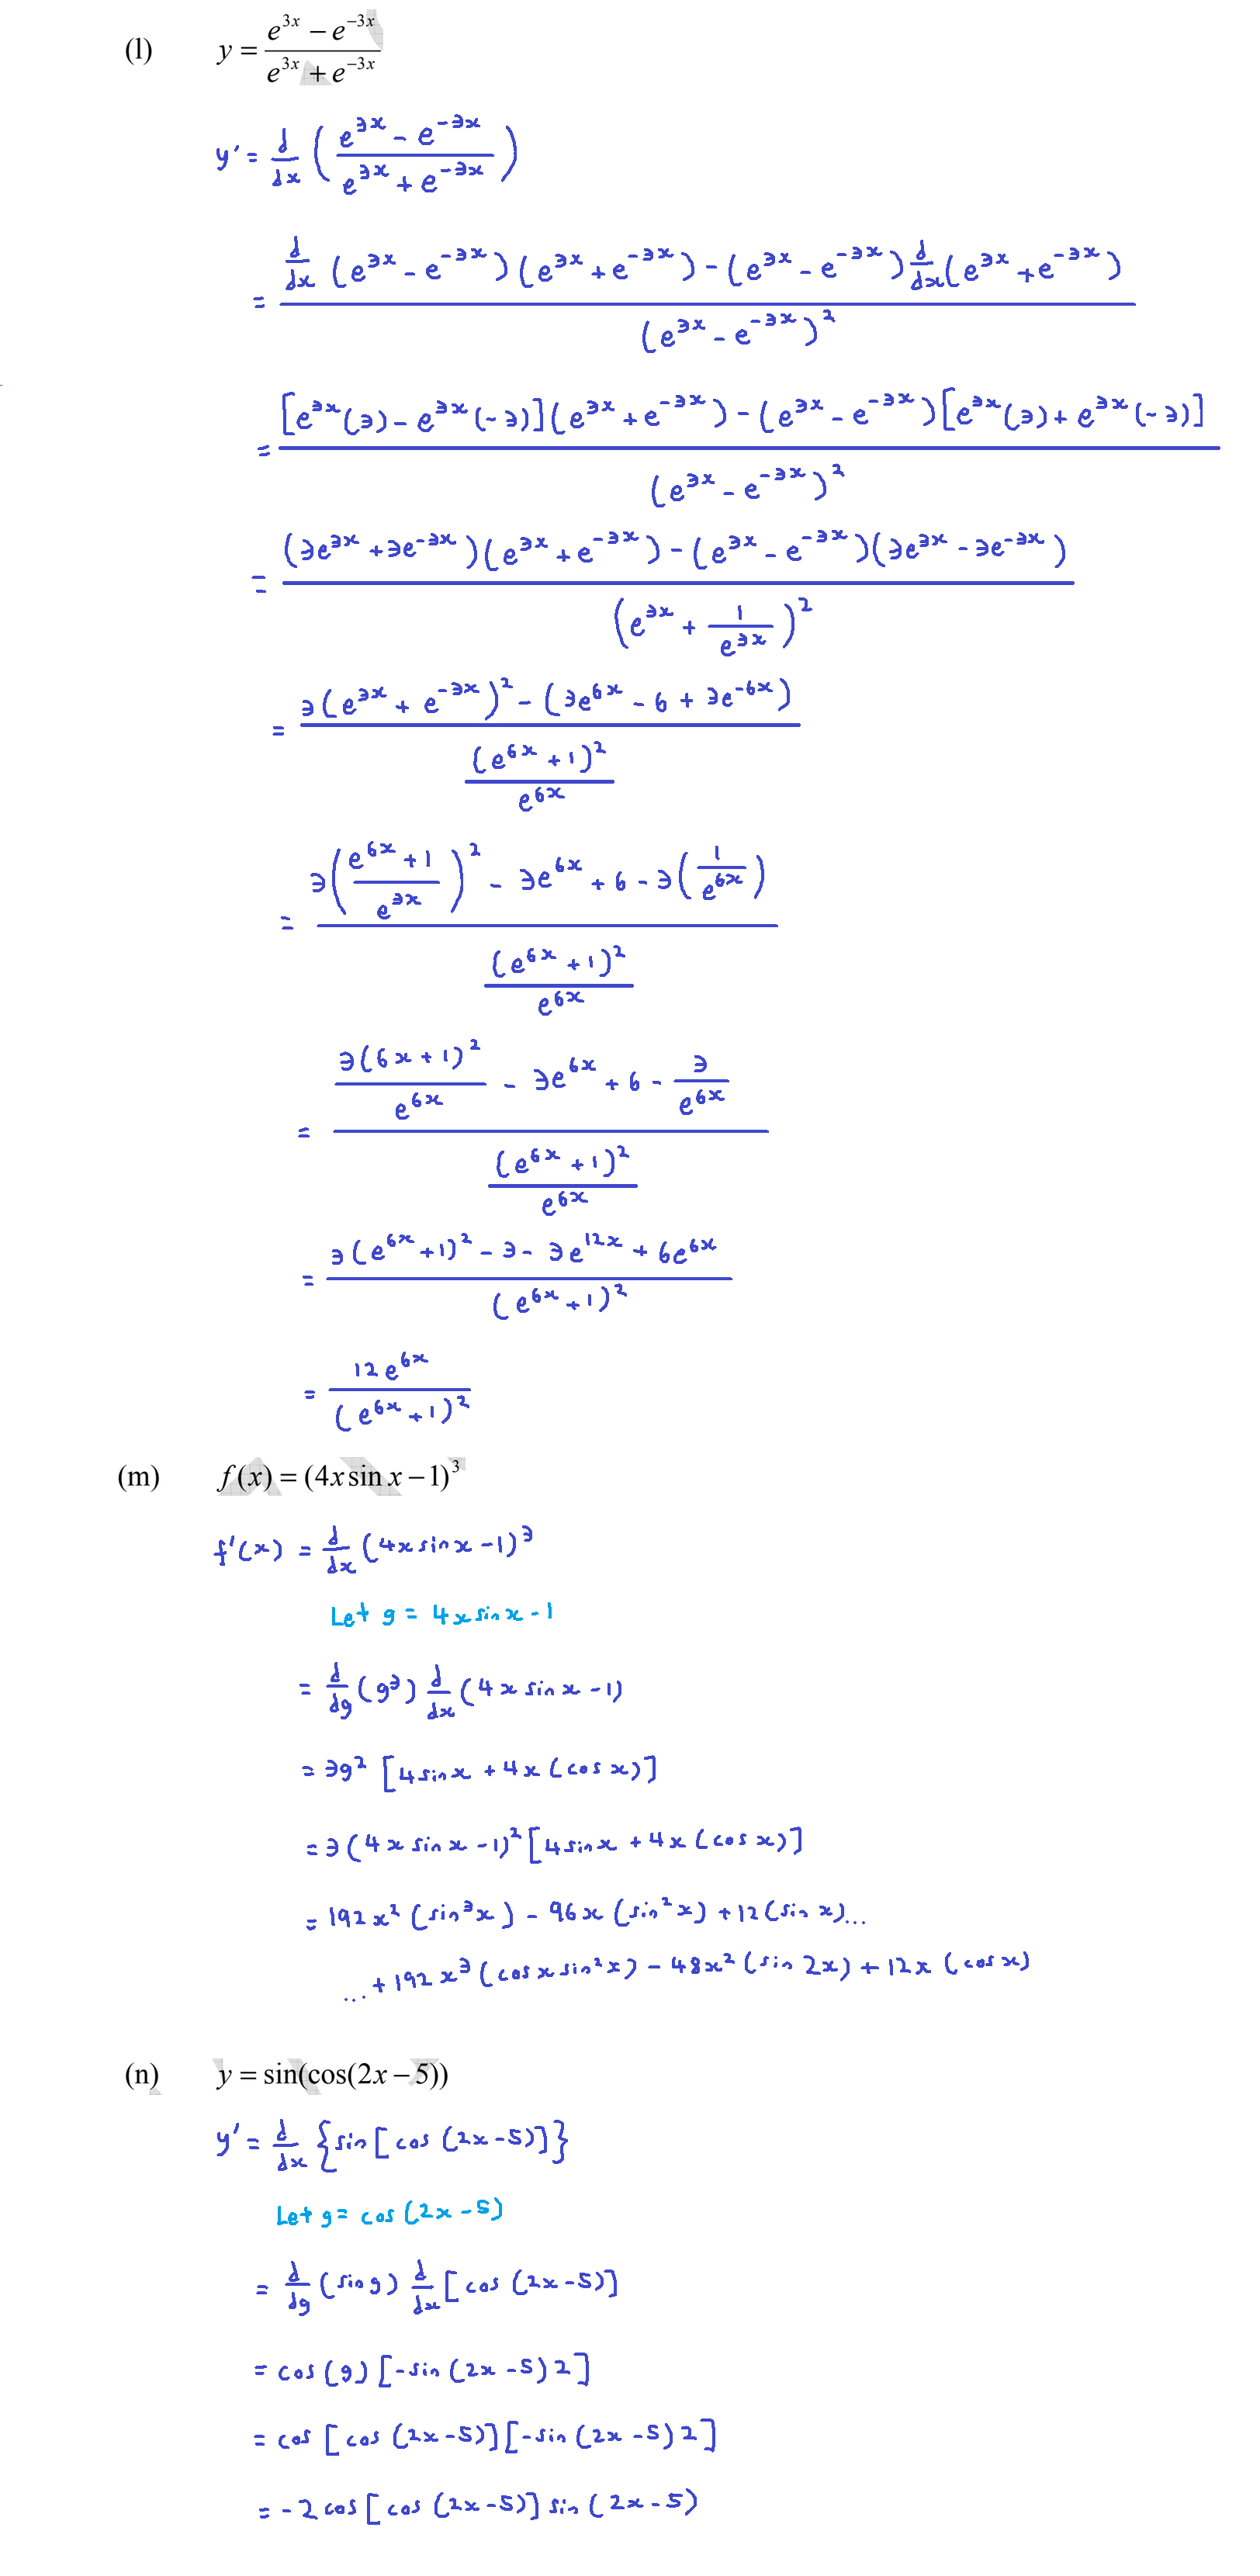 (l) y = (e^{3x} − e^{−3x})/(e^{3x} + e^{−3x})
y' = d/dx ((e^{3x} − e^{−3x})/(e^{3x} + e^{−3x}))
= [d/dx (e^{3x} − e^{−3x})(e^{3x} + e^{−3x}) − (e^{3x} − e^{−3x}) d/dx (e^{3x} + e^{−3x})]/(e^{3x} − e^{−3x})^2
= {[e^{3x}(3) − e^{3x}(−3)](e^{3x} + e^{−3x}) − (e^{3x} − e^{−3x})[e^{3x}(3) + e^{3x}(−3)]}/(e^{3x} − e^{−3x})^2
= [(3e^{3x} + 3e^{−3x})(e^{3x} + e^{−3x}) − (e^{3x} − e^{−3x})(3e^{3x} − 3e^{−3x})]/(e^{3x} + 1/e^{3x})^2
= [3(e^{3x} + e^{−3x})^2 − (3e^{6x} − 6 + 3e^{−6x})]/[(e^{6x} + 1)^2/e^{6x}]
= [3((e^{6x} + 1)/e^{3x})^2 − 3e^{6x} + 6 − 3(1/e^{6x})]/[(e^{6x} + 1)^2/e^{6x}]
= [3(6x + 1)^2/e^{6x} − 3e^{6x} + 6 − 3/e^{6x}]/[(e^{6x} + 1)^2/e^{6x}]
= [3(e^{6x} + 1)^2 − 3 − 3e^{12x} + 6e^{6x}]/(e^{6x} + 1)^2
= 12e^{6x}/(e^{6x} + 1)^2
(m) f(x) = (4x sin x − 1)^3
f'(x) = d/dx (4x sin x − 1)^3
Let g = 4x sin x − 1
= d/dg (g^3) d/dx (4x sin x − 1)
= 3g^2 [4 sin x + 4x (cos x)]
= 3(4x sin x − 1)^2 [4 sin x + 4x (cos x)]
= 192x^2 (sin^3 x) − 96x (sin^2 x) + 12 (sin x)...
... + 192x^3 (cos x sin^2 x) − 48x^2 (sin 2x) + 12x (cos x)
(n) y = sin(cos(2x − 5))
y' = d/dx {sin [cos (2x − 5)]}
Let g = cos (2x − 5)
= d/dg (sin g) d/dx [cos (2x − 5)]
= cos (g) [−sin (2x − 5) 2]
= cos [cos (2x − 5)] [−sin (2x − 5) 2]
= −2 cos [cos (2x − 5)] sin (2x − 5)